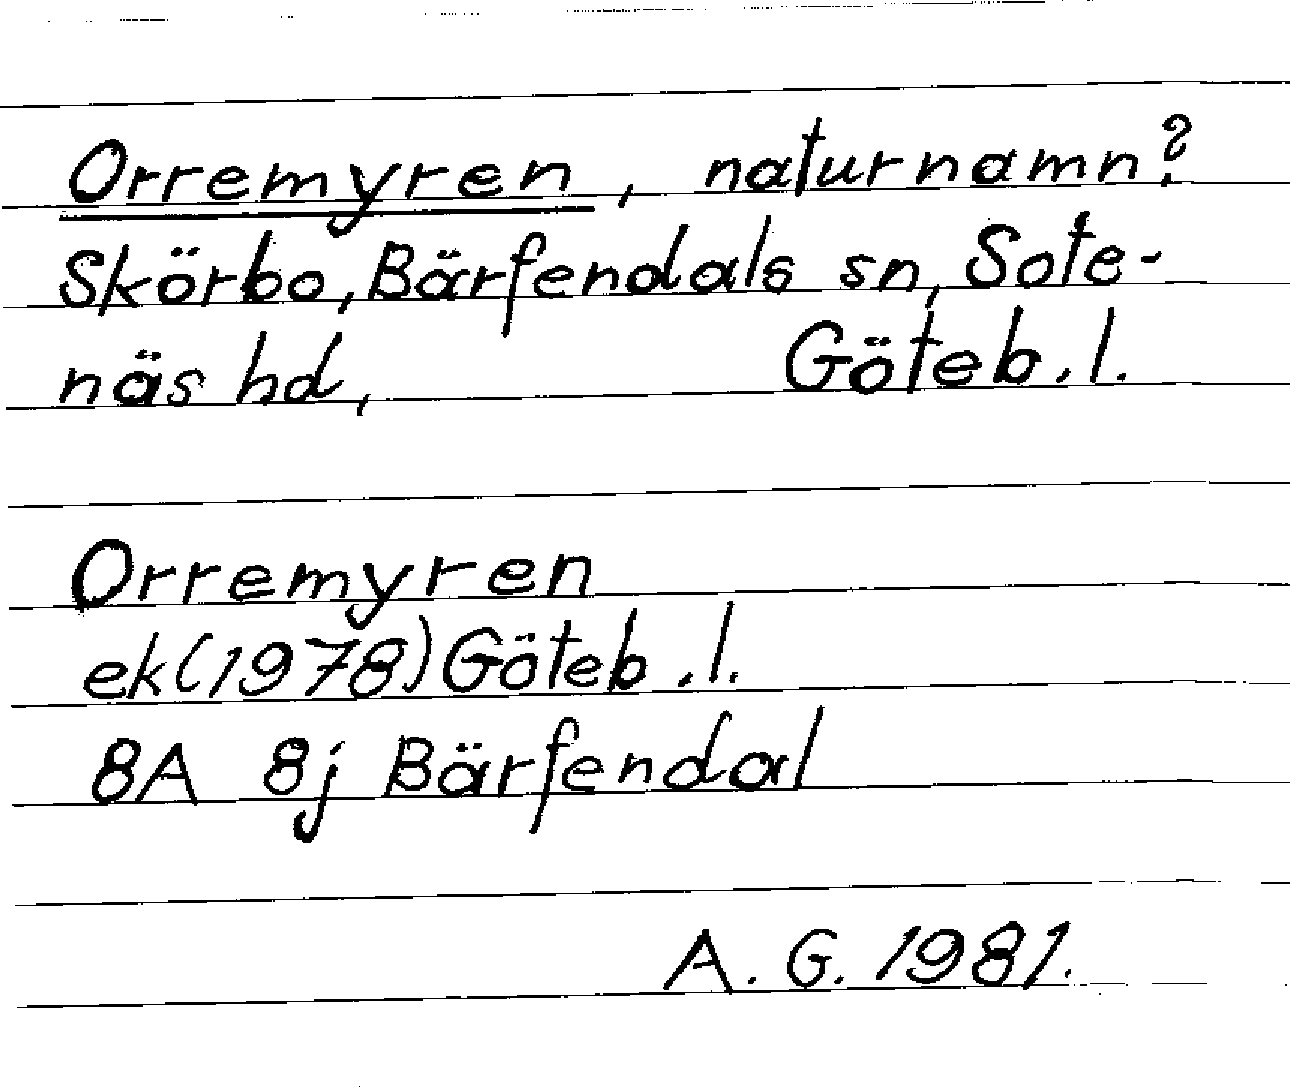 Orremyren, naturnamn?
Skörbo, Bärfendals sn, Sote-
näs hd, Göteb.l.
Orremyren
ek(1978) Göteb.l.
8A 8j Bärfendal
A.G. 1981.